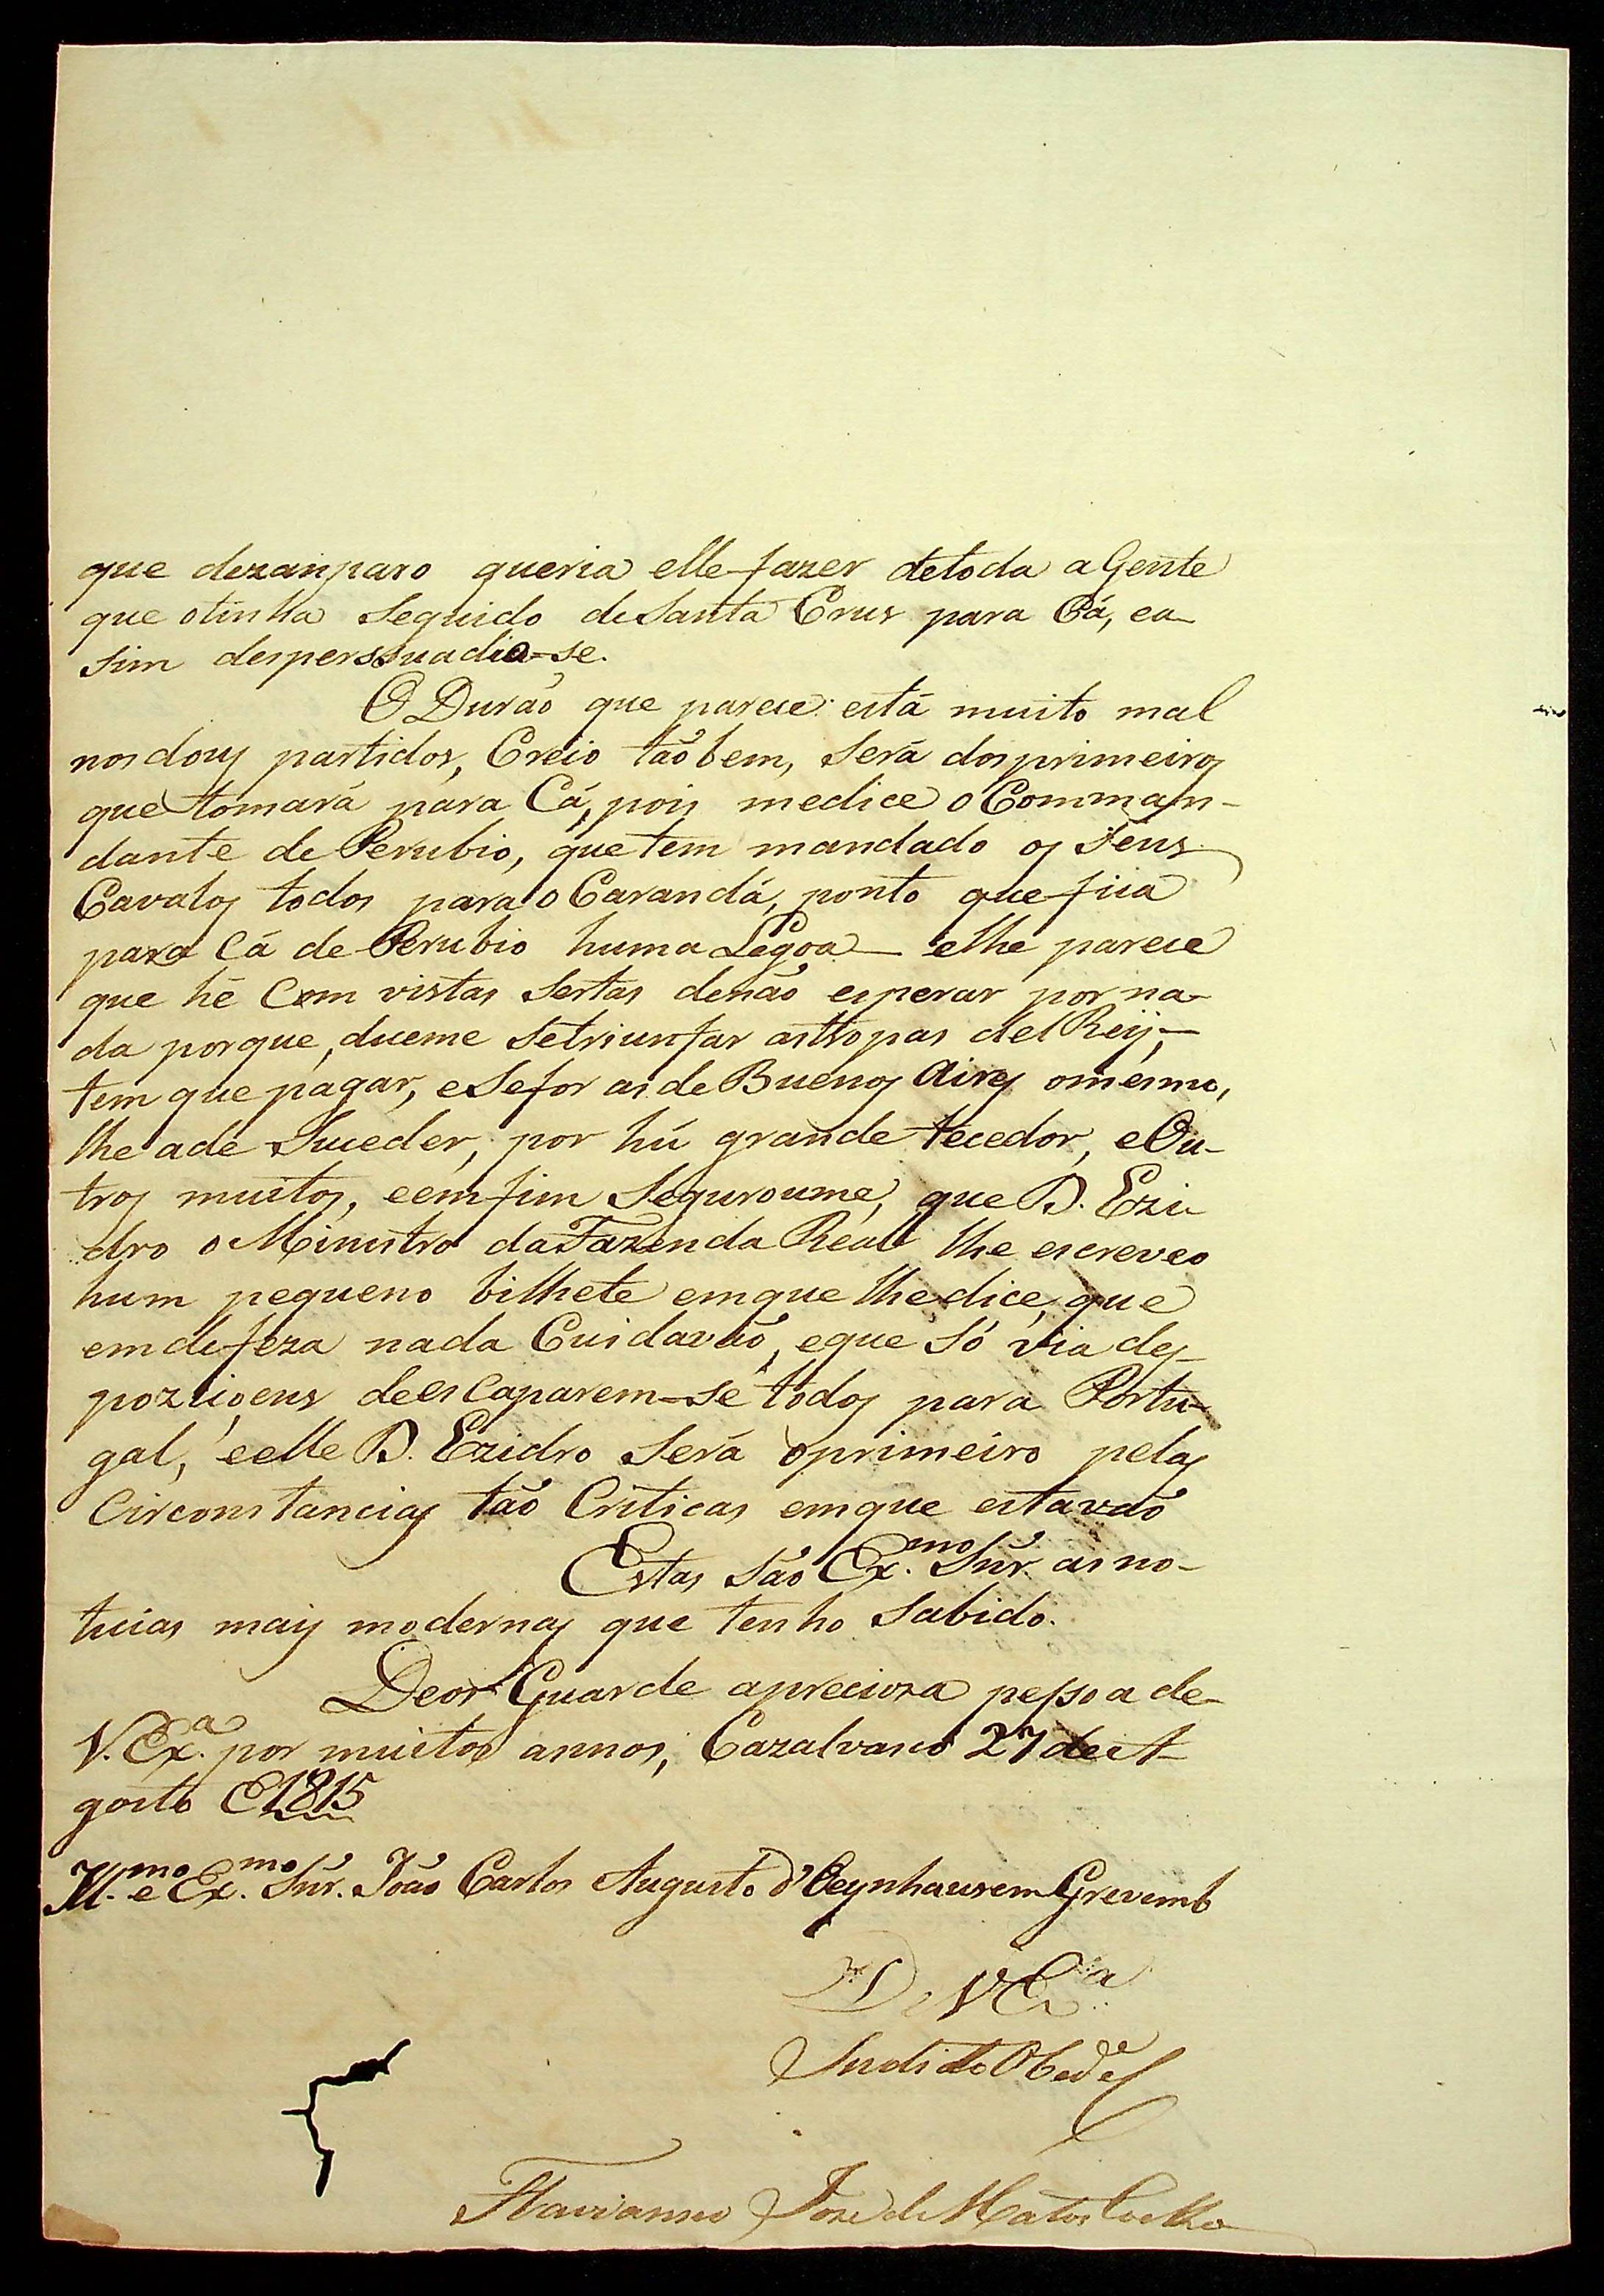 que dezanparo queria elle fazer detoda a Gente
que otinha Seguido de Santa Crus para Cá, ea
sim despersuadio-se.
O Durão que parece está muito mal
nos dous partidos, Creio tãobem, Será dos primeiros
que tomará para Cá, pois medice o Comman-
dante de Perubio, que tem mandado os Seus
Cavalos todos para o Carandá, ponto que fica
para Cá de Perubio huma Legoa — elhe parece
que hé Com vistas Sertas denão esperar por na-
da porque, diceme Setriunfar astropas del Reij,—
tem que pagar, e Sefor as de Buenos Aires omesmo,
lhe ade Suceder, por hú grande tecedor, e Ou-
tros muitos, eemfim Seguroume, que D. Ezi-
dro o Ministro da Fazenda Real lhe escreveo
hum pequeno bilhete emque lhe dice, que
em defeza nada Cuidavão, eque Só via des-
poziçoens de esCaparem-se todos para Portu-
gal, eelle D. Ezidro Será oprimeiro pelas
Circonstancias tão Criticas emque estavão
Estas São Ex.mo Snr. as no-
ticias mais modernas que tenho Sabido.
Deos Guarde apreciosa pessoa de
V. Ex.a por muitos annos, Cazalvasco 27 de A-
gosto 1815
Ill.mo e Ex.mo Snr. João Carlos Augusto d'Oeynhausem Grevemb
D V Ex.a
Subdito Obed.e
Flavianno Jose de Matos Coelho